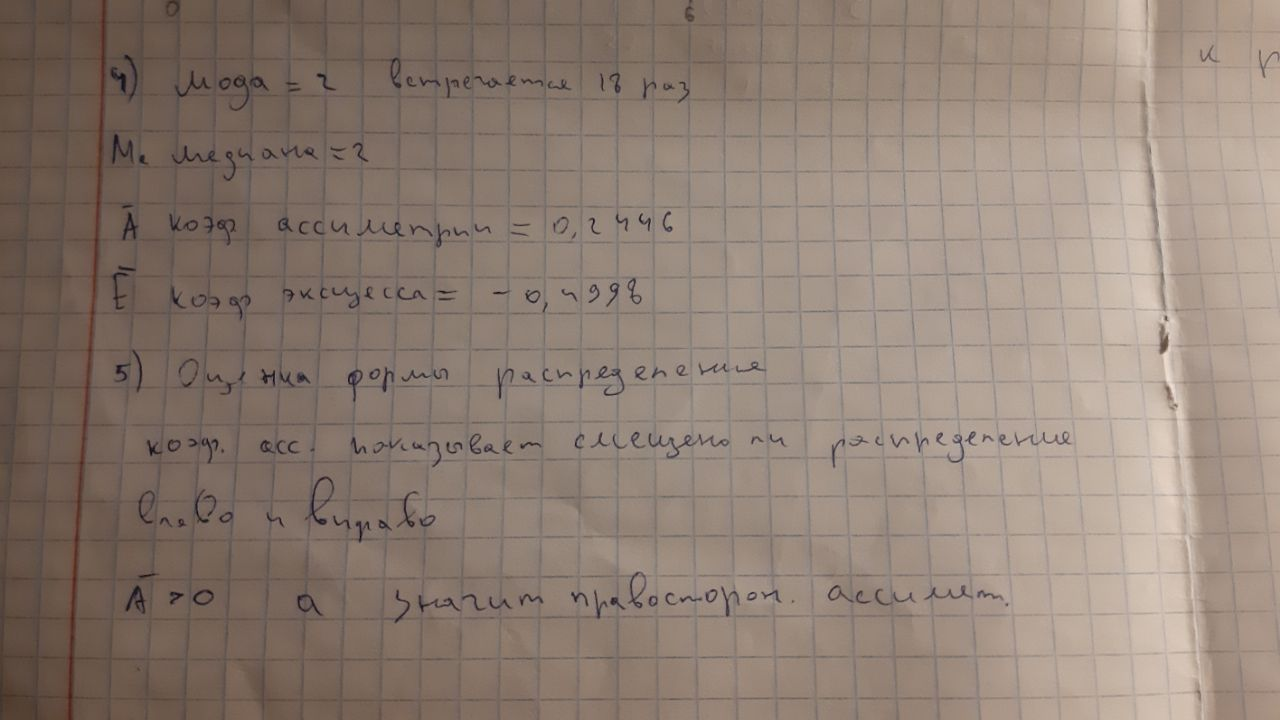 4) мода = 2 встречается 18 раз
Ме медиана = 2
Ā коэф ассиметрии = 0,2446
Ē коэф эксцесса = - 0,4998
5) Оценка формы распределения
коэф. асс. показывает смещено ли распределение
влево и вправо
Ā > 0 а значит правосторон. ассимет.